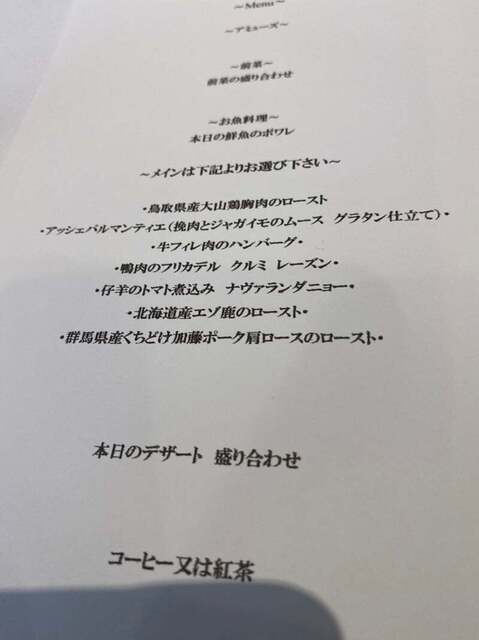 ～Menu～
～アミューズ～
～前菜～
前菜の盛り合わせ
～お魚料理～
本日の鮮魚のポワレ
～メインは下記よりお選び下さい～
・鳥取県産大山鶏胸肉のロースト
・アッシェパルマンティエ(挽肉とジャガイモのムース グラタン仕立て)・
・牛フィレ肉のハンバーグ・
・鴨肉のフリカデル クルミ レーズン・
・仔羊のトマト煮込み ナヴァランダニョー・
・北海道産エゾ鹿のロースト・
・群馬県産くちどけ加藤ポーク肩ロースのロースト・
本日のデザート 盛り合わせ
コーヒー又は紅茶